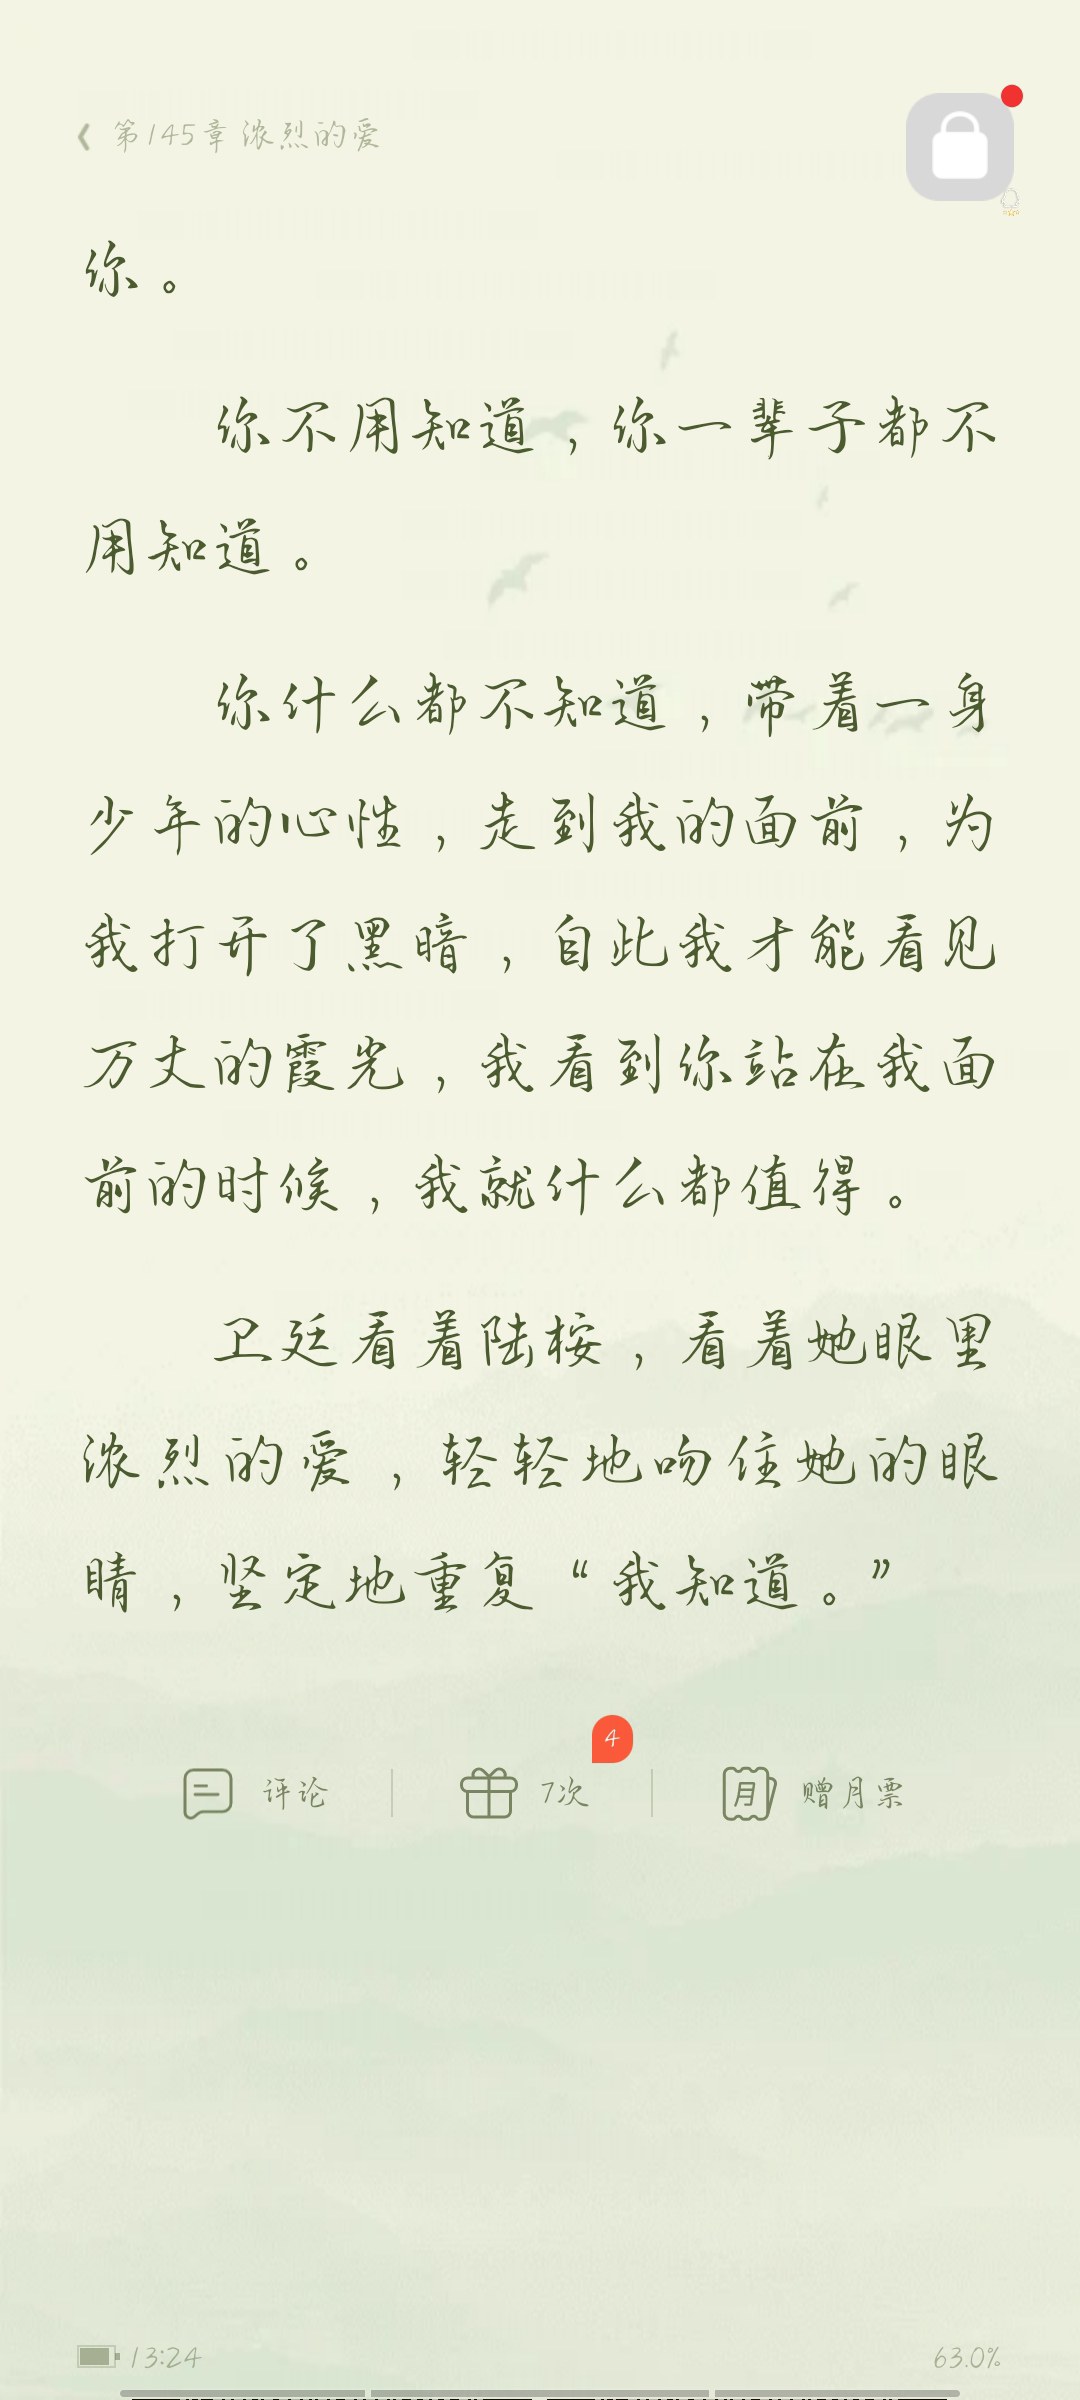 第145章 浓烈的爱
你。
你不用知道，你一辈子都不
用知道。
你什么都不知道，带着一身
少年的心性，走到我的面前，为
我打开了黑暗，自此我才能看见
万丈的霞光，我看到你站在我面
前的时候，我就什么都值得。
卫廷看着陆桉，看着她眼里
浓烈的爱，轻轻地吻住她的眼
睛，坚定地重复“我知道。”
4
评论 7次 月 赠月票
13:24 63.0%